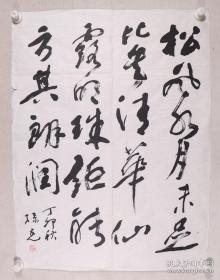 松风水月未足
比其清华仙
露明珠讵能
方其朗润
丁卯秋